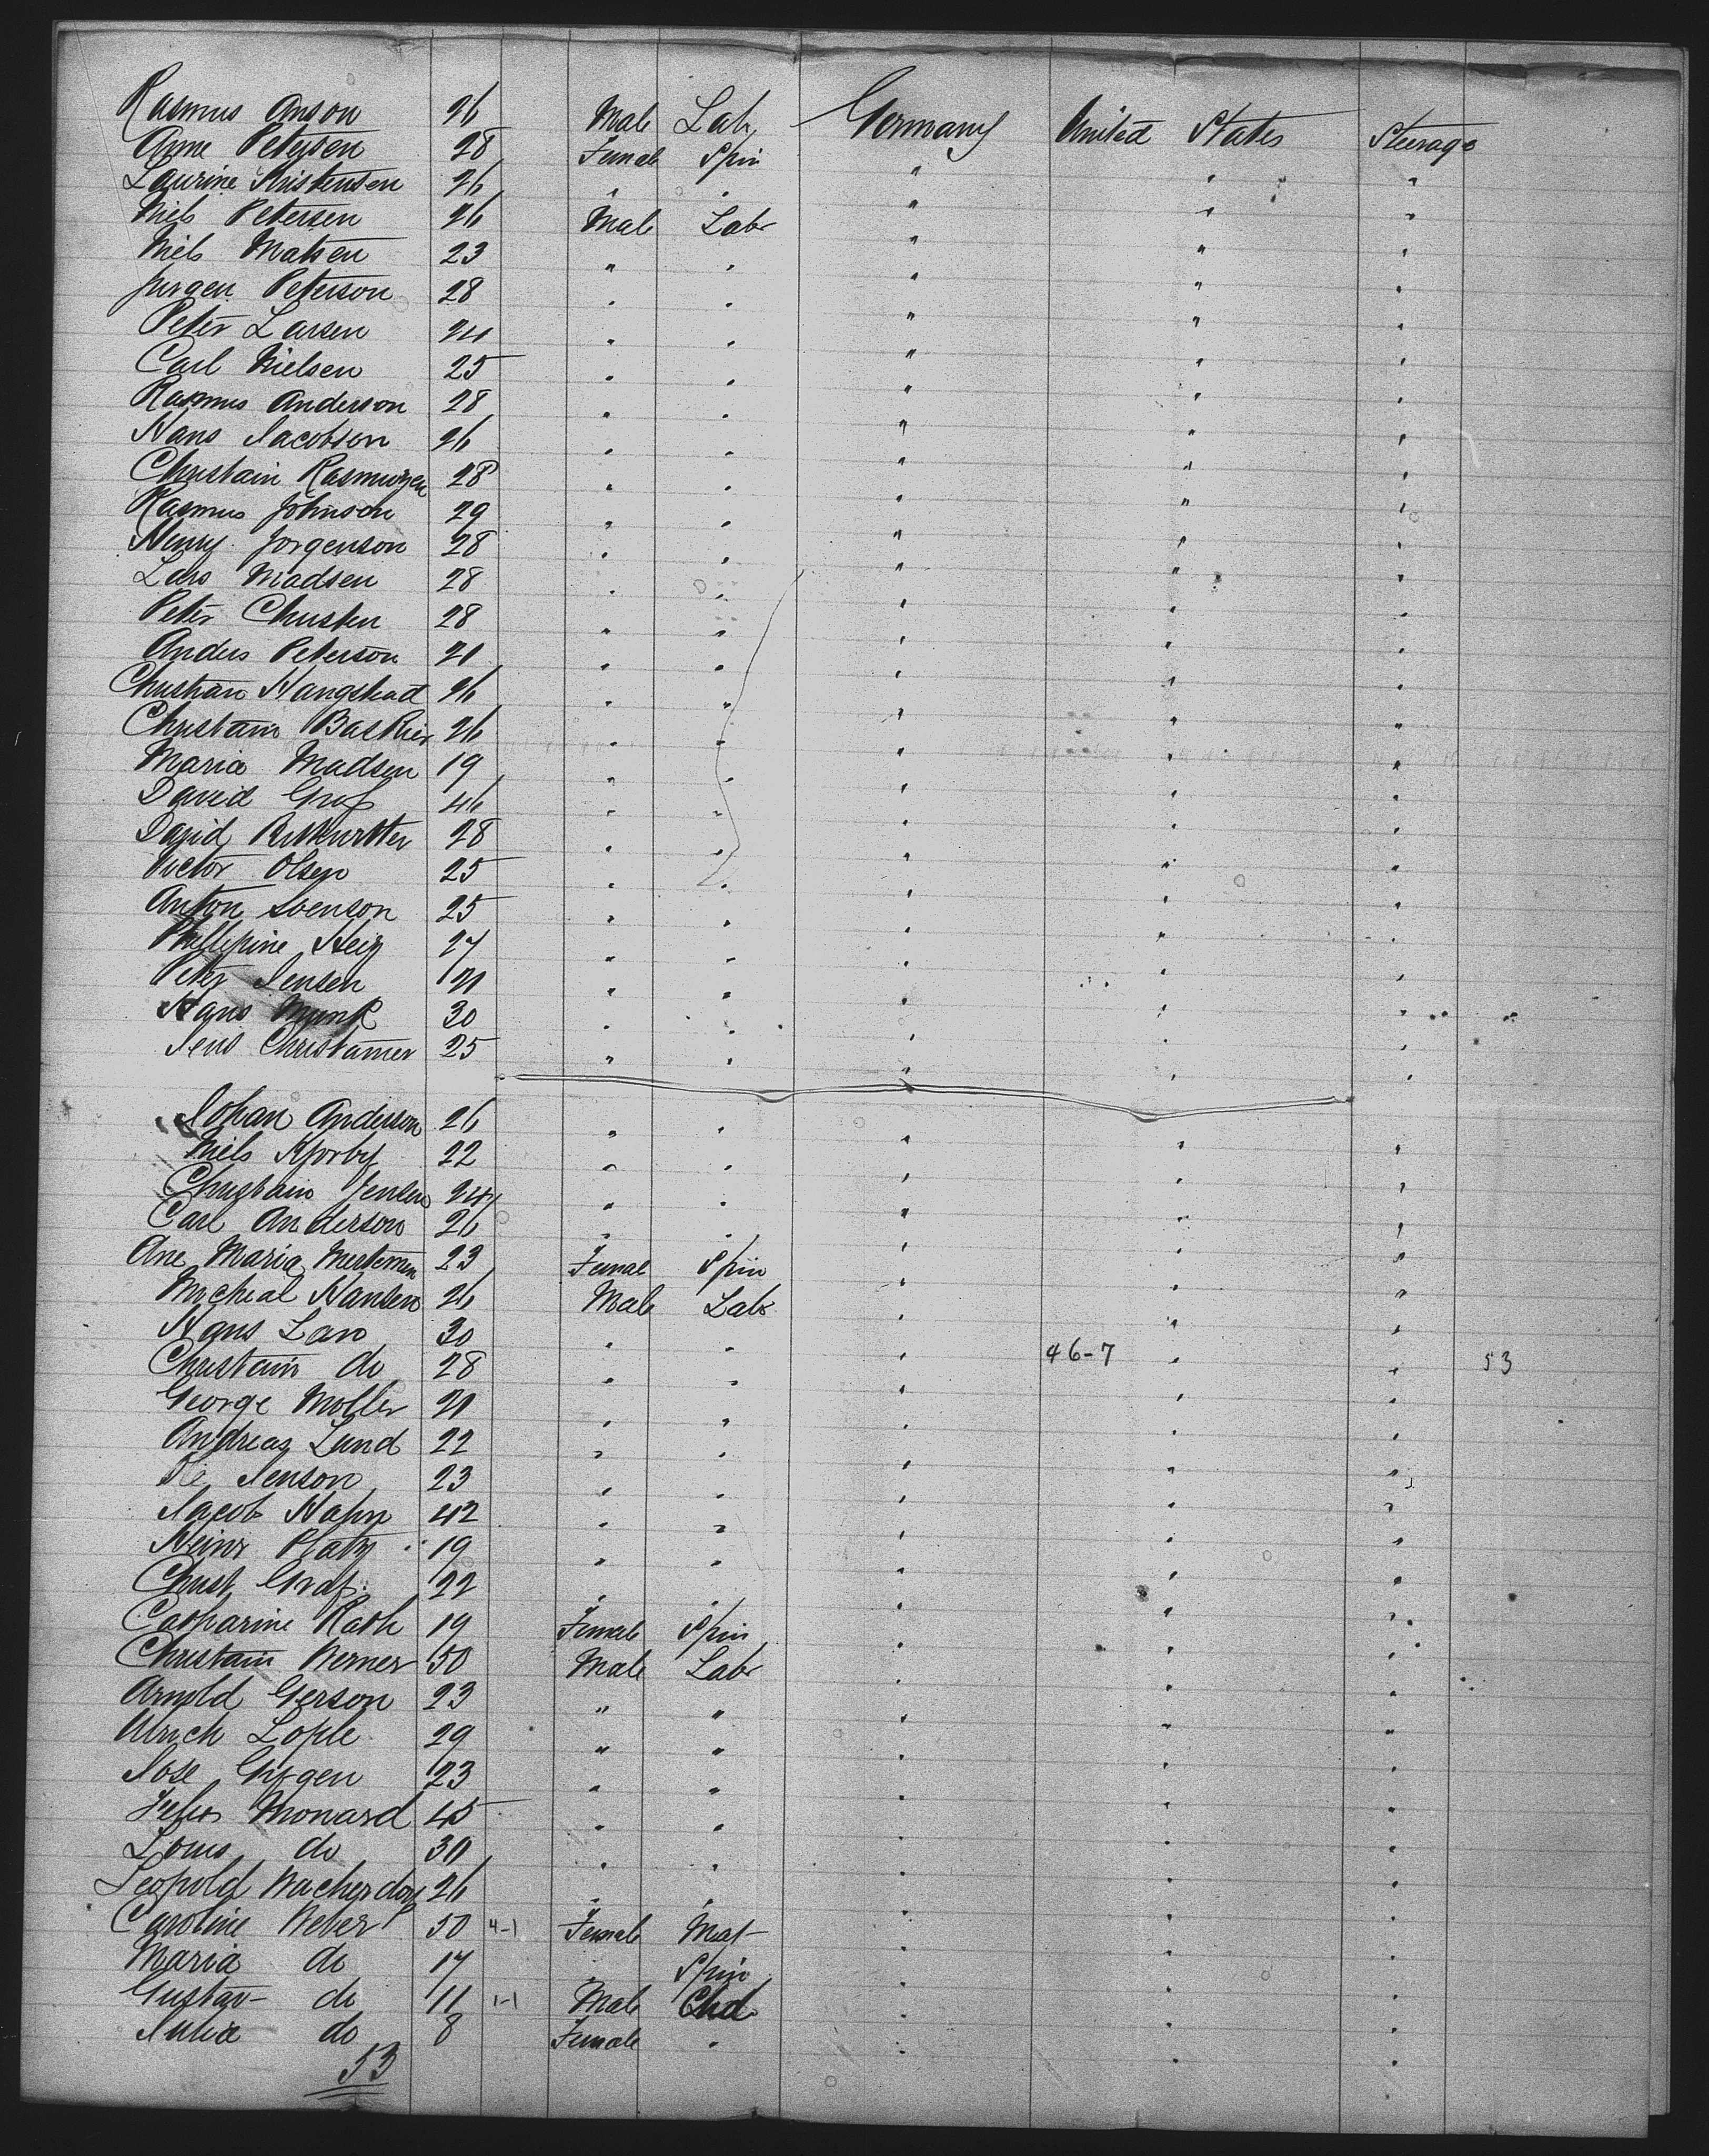 Rasmus Anson 26 Male Labr Germany United States Steerage
Anne Petersen 28 Female Spin " " "
Laurine Kristensen 26 " " " " "
Niels Petersen 26 Male Labr " " "
Niels Matsen 23 " " " " "
Jurgen Peterson 28 " " " " "
Peter Larsen 24 " " " " "
Carl Nielsen 25 " " " " "
Rasmus Anderson 28 " " " " "
Hans Jacobson 26 " " " " "
Christain Rasmussen 28 " " " " "
Rasmus Johnson 29 " " " " "
Henry Jorgenson 28 " " " " "
Lars Madsen 28 " " " " "
Peter Christen 28 " " " " "
Anders Peterson 21 " " " " "
Christian Hangstead 26 " " " " "
Christain 26 " " " " "
Maria Madsen 19 " " " " "
David Graf 46 " " " " "
David 28 " " " " "
Victor Olsen 25 " " " " "
Anton Svenson 25 " " " " "
Phillipine 27 " " " " "
Peter Jensen 21 " " " " "
Hans Munk 30 " " " " "
Jens 25 " " " " "
Johan Anderson 26 " " " " "
Niels Kjorby 22 " " " " "
Christain Jensen 24 " " " " "
Carl Anderson 26 " " " " "
Ane Maria 23 Female Spin " " "
Micheal Hansen 26 Male Labr " " "
Hans Lau 30 " " " " "
Christain do 28 " " " 46-7 " " 53
George Moller 21 " " " " "
Andreas Lund 22 " " " " "
Jenson 23 " " " " "
Jacob Hahn 42 " " " " "
Heinr Platz 19 " " " " "
Christ Graf 22 " " " " "
Catharine Rath 19 Female Spin " " "
Christain Werner 50 Male Labr " " "
Arnold Gerson 23 " " " " "
Ulrich Lople 29 " " " " "
Jose 23 " " " " "
Jules Monard 45 " " " " "
Louis do 30 " " " " "
Leopold 26 " " " " "
Caroline Weber 50 4-1 Female Mat " " "
Maria do 17 " Spin " " "
Gustav do 11 1-1 Male Chd " " "
Julia do 8 Female " " " "
53